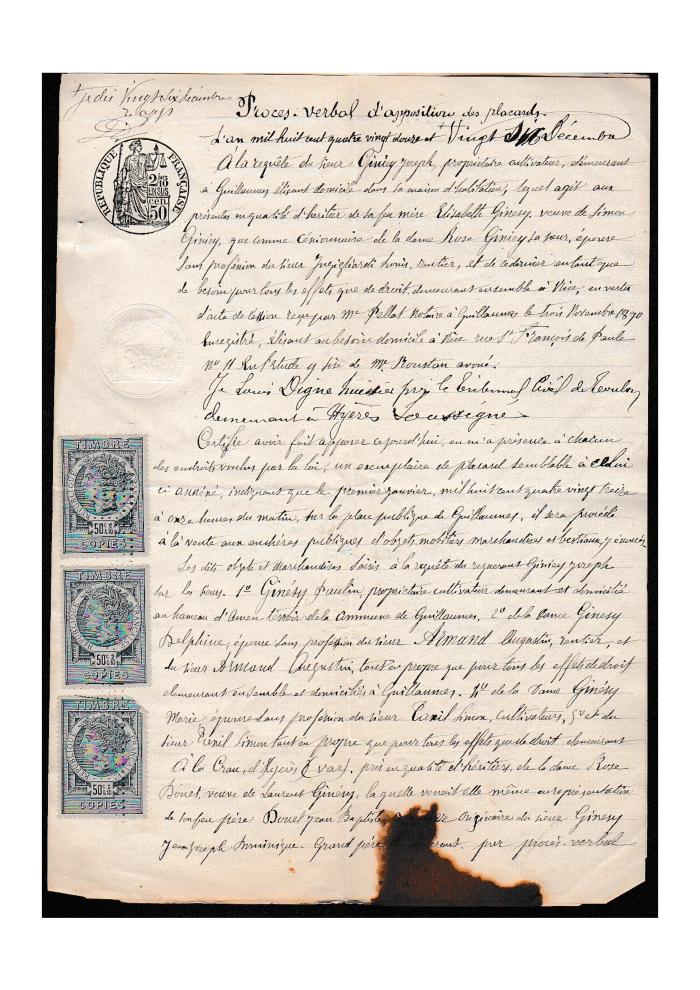 Je dis Vingt six décembre
Procès-verbal d'apposition des placards.
L'an mil huit cent quatre vingt douze et Vingt Décembre
A la requête du sieur Giniéy Joseph, propriétaire cultivateur, demeurant
à Guillaumes élisant domicile dans sa maison d'habitation, lequel agit aux
présentes en qualité d'héritier de sa feu mère Elisabeth Ginésy, veuve de Simon
Giniéy, que comme cessionnaire de la dame Rose Giniéy sa sœur, épouse
sans profession du sieur Louis, rentier, et de ce dernier en tant que
de besoin pour tous les effets que de droit, demeurant ensemble à Nice, en vertu
d'acte de cession reçu par Me Pellat Notaire à Guillaumes le trois Novembre 1870
Enregistré, élisant au besoin domicile à Nice rue St François de Paule
No 11 En l'Etude y sise de Me Roustan avoué.
Je Louis Digne huissier près le Tribunal Civil de Toulon,
demeurant à Hyères Soussigné
Certifie avoir fait apposer cejourd'hui, en ma présence à chacun
des endroits voulus par la loi, un exemplaire de placard semblable à celui
ci annéné, indiquant que le premier janvier, mil huit cent quatre vingt treize
à onze heures du matin, sur la place publique de Guillaumes, il sera procédé
à la vente aux enchères publiques d'objets mobiliers marchandises et bestiaux y énoncés
Les dits objets et Marchandises saisis à la requête du requérant Giniéy Joseph
sur les sieurs. 1º Ginésy Paulin, propriétaire cultivateur demeurant et domicilié
au hameau d'Amen terroir de la commune de Guillaumes, 2º de la Dame Ginésy
Delphine, épouse sans profession du sieur Armand Augustin, rentier, et
du sieur Armand Augustin, tant en propre que pour tous les effets de droit
demeurant ensemble et domiciliés à Guillaumes. 4º de la Dame Ginésy
Marie épouse sans profession du sieur Tanil Simon, cultivateurs, 5º et du
sieur Tanil Simon tant en propre que pour tous les effets que de droit demeurant
A la Crau, d'Hyères (Var), pris en qualité d'héritiers, de la dame Rose
Douet, veuve de Laurent Ginésy, laquelle venait elle même en représentation
de son feu père Douet Jean Baptiste originaire du sieur Ginésy
Jean Joseph Dominique. Grand père par procès-verbal
RÉPUBLIQUE FRANÇAISE
2/10 EN SUS
50 cen.
TIMBRE
50c
COPIES
TIMBRE
50c
COPIES
TIMBRE
50c
COPIES